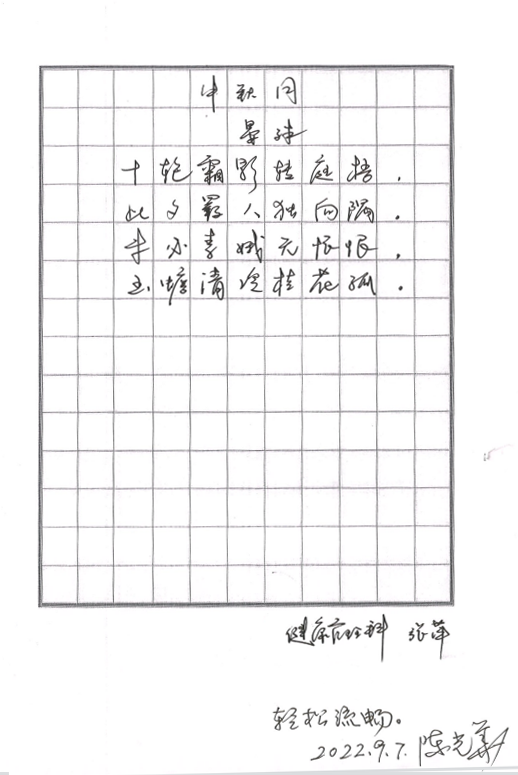 中秋月
晏殊
十轮霜影转庭梧,
此夕羁人独向隅。
未必素娥无怅恨,
玉蟾清冷桂花孤。
健康管理科 张萍
轻松流畅。
2022.9.7. 陈光华